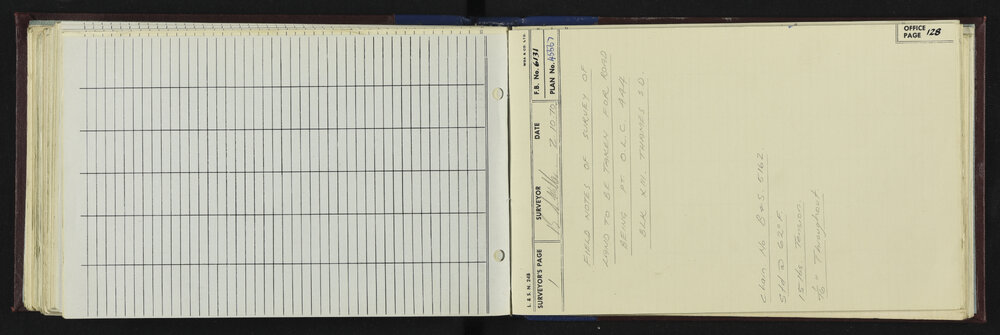 OFFICE PAGE 128
L. & S. N. 248
WBA & CO. LTD.
SURVEYOR'S PAGE 1
SURVEYOR
DATE 2.10.70
F.B. No. 6131
PLAN No. 45567
FIELD NOTES OF SURVEY OF
LAND TO BE TAKEN FOR ROAD
BEING PT O.L.C. 444
BLK XII THAMES S D
Chain No B & S 5162.
Std @ 62° F
15 lbs. Tension
Throughout.